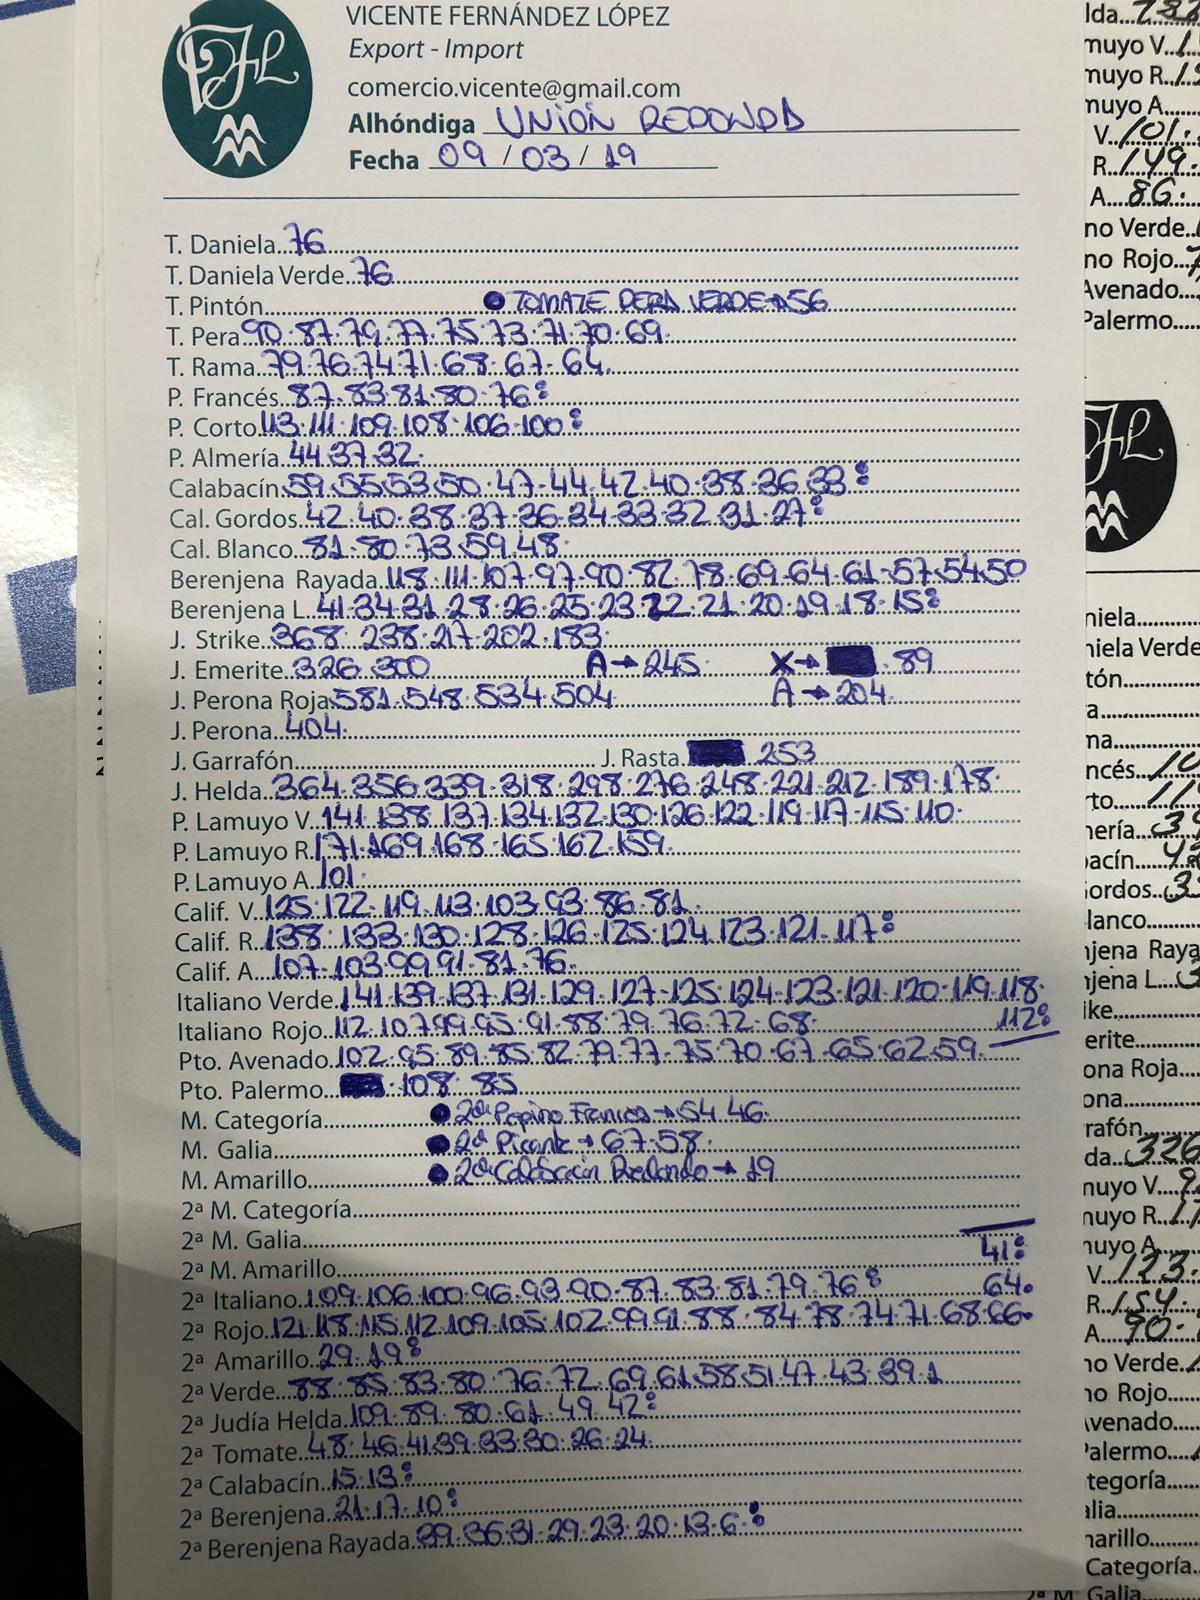 VICENTE FERNÁNDEZ LÓPEZ
Export - Import
comercio.vicente@gmail.com
Alhóndiga UNION REDONDA
Fecha 09 / 03 / 19
T. Daniela 76
T. Daniela Verde 76
T. Pintón ● TOMATE PERA VERDE → 56
T. Pera 90·87·79·77·75·73·71·70·69·
T. Rama 79·76·74·71·68·67·64·
P. Francés 87·83·81·80·76:
P. Corto 113·111·109·108·106·100:
P. Almería 44·37·32·
Calabacín 59·55·53·50·47·44·42·40·38·36·33:
Cal. Gordos 42·40·38·37·36·34·33·32·31·27:
Cal. Blanco 81·80·73·59·48·
Berenjena Rayada 118·111·107·97·90·82·78·69·64·61·57·54·50
Berenjena L. 41·34·31·28·26·25·23·22·21·20·19·18·15:
J. Strike 368·238·217·202·183·
J. Emerite 326·300 A → 245· X → ·89
J. Perona Roja 581·548·534·504 A → 204·
J. Perona 404·
J. Garrafón J. Rasta 253
J. Helda 364·356·339·318·298·276·248·221·212·189·178·
P. Lamuyo V. 141·138·137·134·132·130·126·122·119·117·115·110·
P. Lamuyo R. 171·169·168·165·162·159·
P. Lamuyo A. 101·
Calif. V. 125·122·119·113·103·93·86·81·
Calif. R. 138·133·130·128·126·125·124·123·121·117:
Calif. A. 107·103·99·91·81·76·
Italiano Verde 141·139·137·131·129·127·125·124·123·121·120·119·118·
112:
Italiano Rojo 112·107·99·95·91·88·79·76·72·68·
Pto. Avenado 102·95·89·85·82·79·77·75·70·67·65·62·59·
Pto. Palermo ·108·85
M. Categoría ● 2ª Pepino Frances → 54·46·
M. Galia ● 2ª Picante → 67·58·
M. Amarillo ● 2ª Calabacín Redondo → 19
2ª M. Categoría
2ª M. Galia
41:
2ª M. Amarillo
64·
2ª Italiano 109·106·100·96·93·90·87·83·81·79·76:
2ª Rojo 121·118·115·112·109·105·102·99·91·88·84·78·74·71·68·66·
2ª Amarillo 29·19:
2ª Verde 88·85·83·80·76·72·69·61·58·51·47·43·39·1
2ª Judía Helda 109·89·80·61·49·42:
2ª Tomate 48·46·41·39·33·30·26·24·
2ª Calabacín 15·13:
2ª Berenjena 21·17·10:
2ª Berenjena Rayada 39·36·31·29·23·20·13·6: